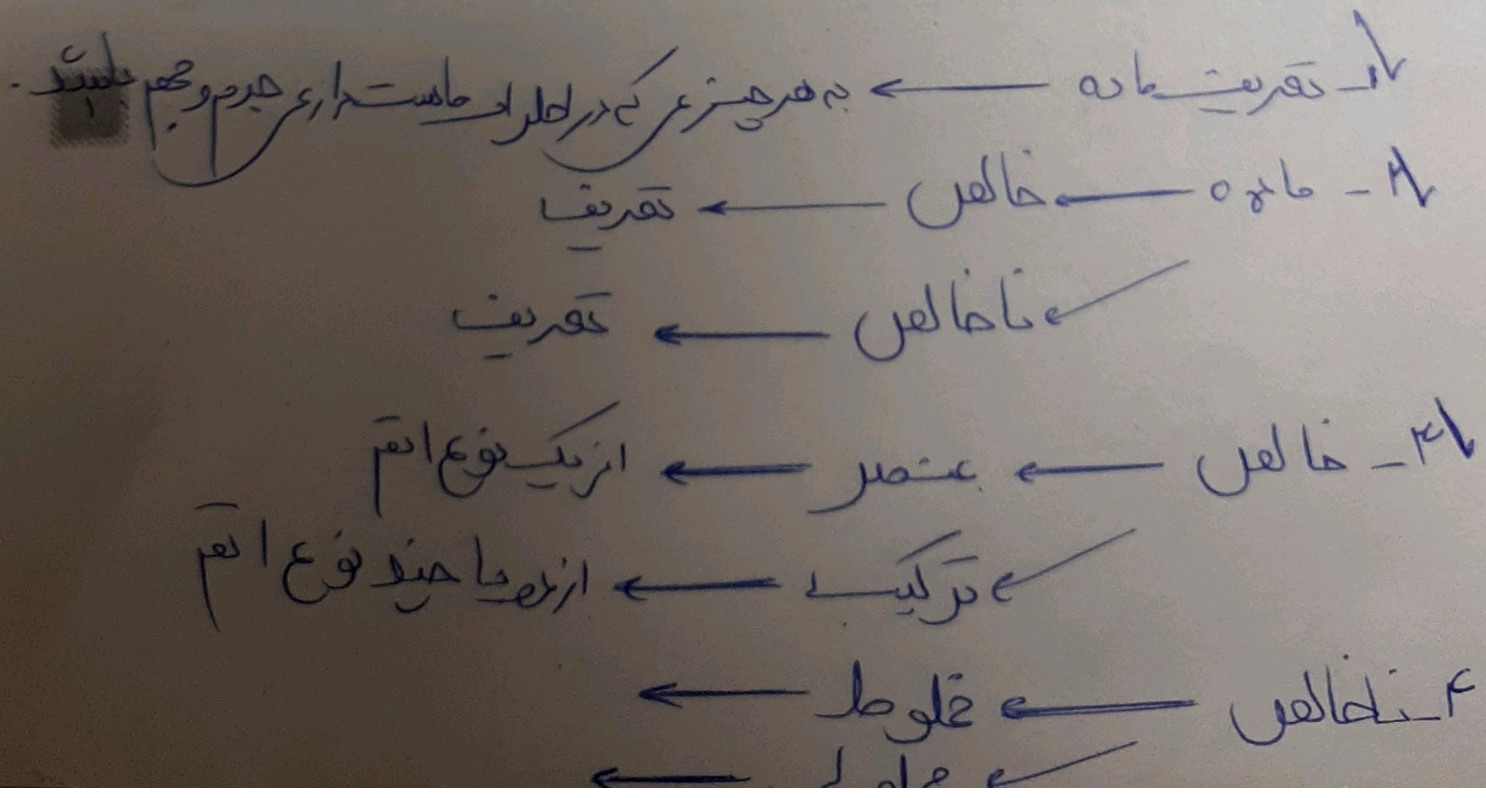 ۱- تعریف ماده ← به هر چیزی که در اطراف ماست دارای جرم و حجم باشد.
۲- ماده ← خالص ← تعریف
← ناخالص ← تعریف
۳- خالص ← عنصر ← از یک نوع اتم
← ترکیب ← از دو یا چند نوع اتم
۴- ناخالص ← مخلوط ←
← محلول ←